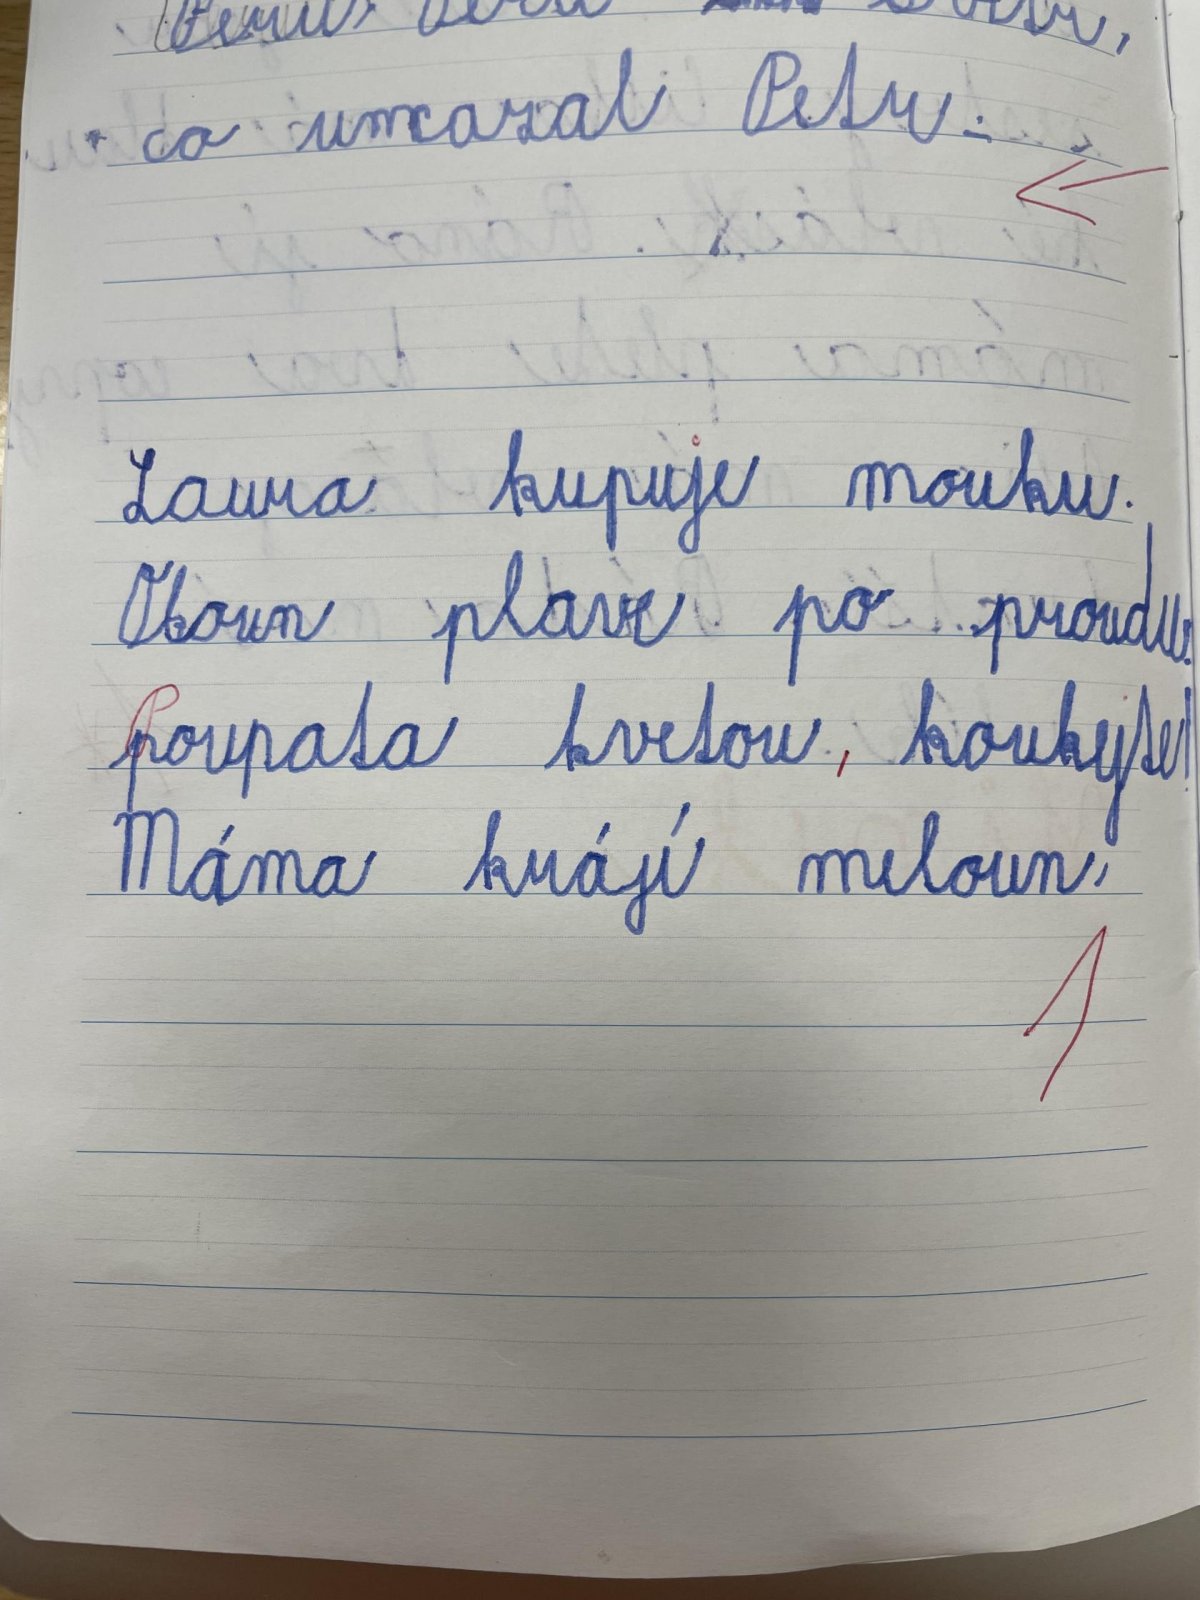 co umazal Petr.
Laura kupuje mouku.
Okoun plave po proudu.
Poupata kvetou, koukejte!
Máma krájí meloun.
1